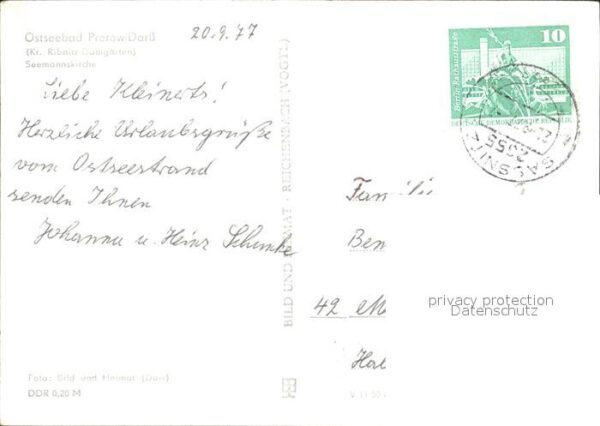 Ostseebad Prerow/Darß
(Kr. Ribnitz-Damgarten)
Seemannskirche
20.9.77
Liebe Kleinerts!
Herzliche Urlaubsgrüße
vom Ostseestrand
senden Ihnen
Johanna u. Heinz
Foto: Bild und Heimat (Darr)
DDR 0,20 M
BILD UND HEIMAT · REICHENBACH (VOGTL)
10
Berlin, Rathausstraße
DEUTSCHE DEMOKRATISCHE REPUBLIK
2355
SASSNITZ
Famili
Ben
42 M
privacy protection
Datenschutz